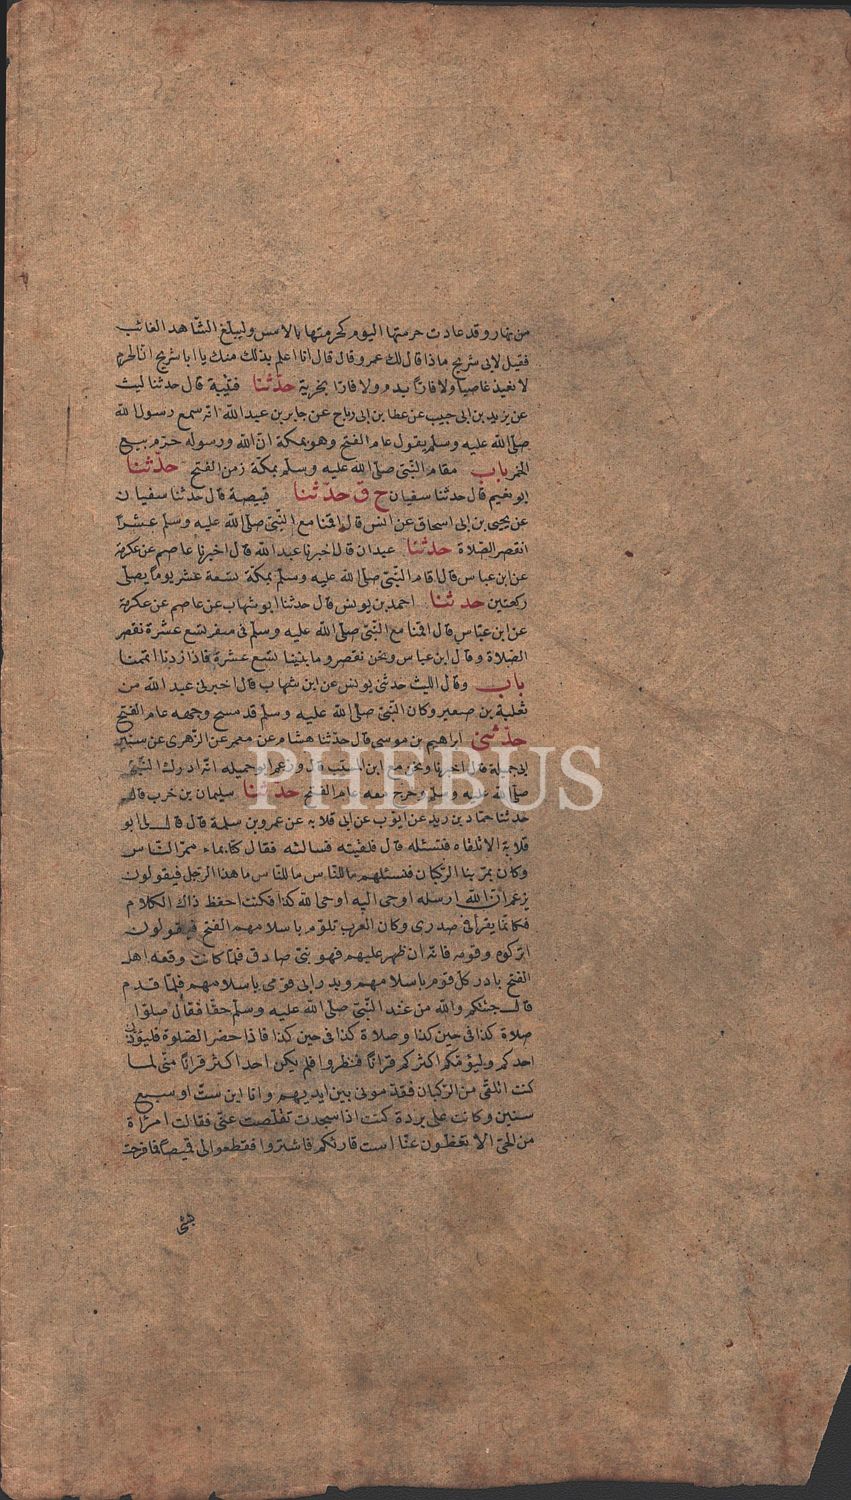 من نهار وقد عادت حرمتها اليوم كحرمتها بالامس وليبلغ الشاهد الغائب
فقيل لابى شريح ماذا قال لك عمرو قال قال انا اعلم بذلك منك يا ابا شريح ان الحرم
لا يعيذ عاصيا ولا فارّا بدم ولا فارّا بخربة حدّثنا قتيبة قال حدثنا ليث
عن يزيد بن ابى حبيب عن عطا بن ابى رباح عن جابر بن عبد الله انه سمع رسول الله
صلّى الله عليه وسلم يقول عام الفتح وهو بمكة انّ الله ورسوله حرّم بيع
الخمر باب مقام النّبىّ صلّى الله عليه وسلّم بمكة زمن الفتح حدّثنا
ابو نعيم قال حدثنا سفيان ح ق حدّثنا قبيصة قال حدثنا سفيان
عن يحيى بن ابى اسحاق عن انس قال اقمنا مع النّبىّ صلّى الله عليه وسلم عشرًا
نقصر الصّلاة حدثنا عبدان قال اخبرنا عبد الله قال اخبرنا عاصم عن عكرمة
عن ابن عباس قال اقام النّبىّ صلّى الله عليه وسلّم بمكة تسعة عشر يومًا يصلّى
ركعتين حدثنا احمد بن يونس قال حدثنا ابو شهاب عن عاصم عن عكرمة
عن ابن عبّاس قال اقمنا مع النّبىّ صلّى الله عليه وسلّم فى سفر تسع عشرة نقصر
الصّلاة وقال ابن عباس ونحن نقصر وما بيننا تسع عشرة فاذا زدنا اتممنا
باب وقال الليث حدثنى يونس عن ابن شهاب قال اخبرنى عبد الله من
ثعلبة بن صعير وكان النّبىّ صلّى الله عليه وسلم قد مسح وجهه عام الفتح
حدّثنى ابراهيم بن موسى قال حدّثنا هشام عن معمر عن الزّهرى عن سنين
ابى جميلة قال اخبرنا ونحن مع ابن المسيّب قال وزعم ابو جميله انّه ادرك النّبىّ
صلّى الله عليه وسلّم وخرج معه عام الفتح حدثنا سليمان بن حرب قال
حدثنا حمّاد بن زيد عن ايّوب عن ابى قلابه عن عمرو بن سلمة قال قال لى ابو
قلابة الا تلقاه فتسئله قال فلقيته فسالته فقال كنّا بماء ممرّ النّاس
وكان يمرّ بنا الرّكبان فنسئلهم ما للنّاس ما للنّاس ما هذا الرجل فيقولون
يزعم انّ الله ارسله اوحى اليه اوحى الله كذا فكنت احفظ ذاك الكلام
فكانّما يقرأ فى صدرى وكان العرب تلوّم باسلامهم الفتح فيقولون
اتركوه وقومه فانه ان ظهر عليهم فهو نبىّ صادق فلمّا كانت وقعه اهل
الفتح بادر كلّ قوم باسلامهم وبدر ابى قومى باسلامهم فلمّا قدم
قال جئتكم والله من عند النّبىّ صلّى الله عليه وسلّم حقّا فقال صلّوا
صلاة كذا فى حين كذا وصلاة كذا فى حين كذا فاذا حضر الصّلوة فليؤذن
احدكم وليؤمّكم اكثركم قرانًا فنظروا فلم يكن احد اكثر قرانًا منّى لما
كنت اتلقّى من الرّكبان فقدّمونى بين ايديهم وانا ابن ستّ او سبع
سنين وكانت علىّ بردة كنت اذا سجدت تقلّصت عنّى فقالت امرأة
من الحىّ الا تغطّون عنّا است قارئكم فاشتروا فقطعوا لى قميصًا فما فرحت
بشئ
PHEBUS